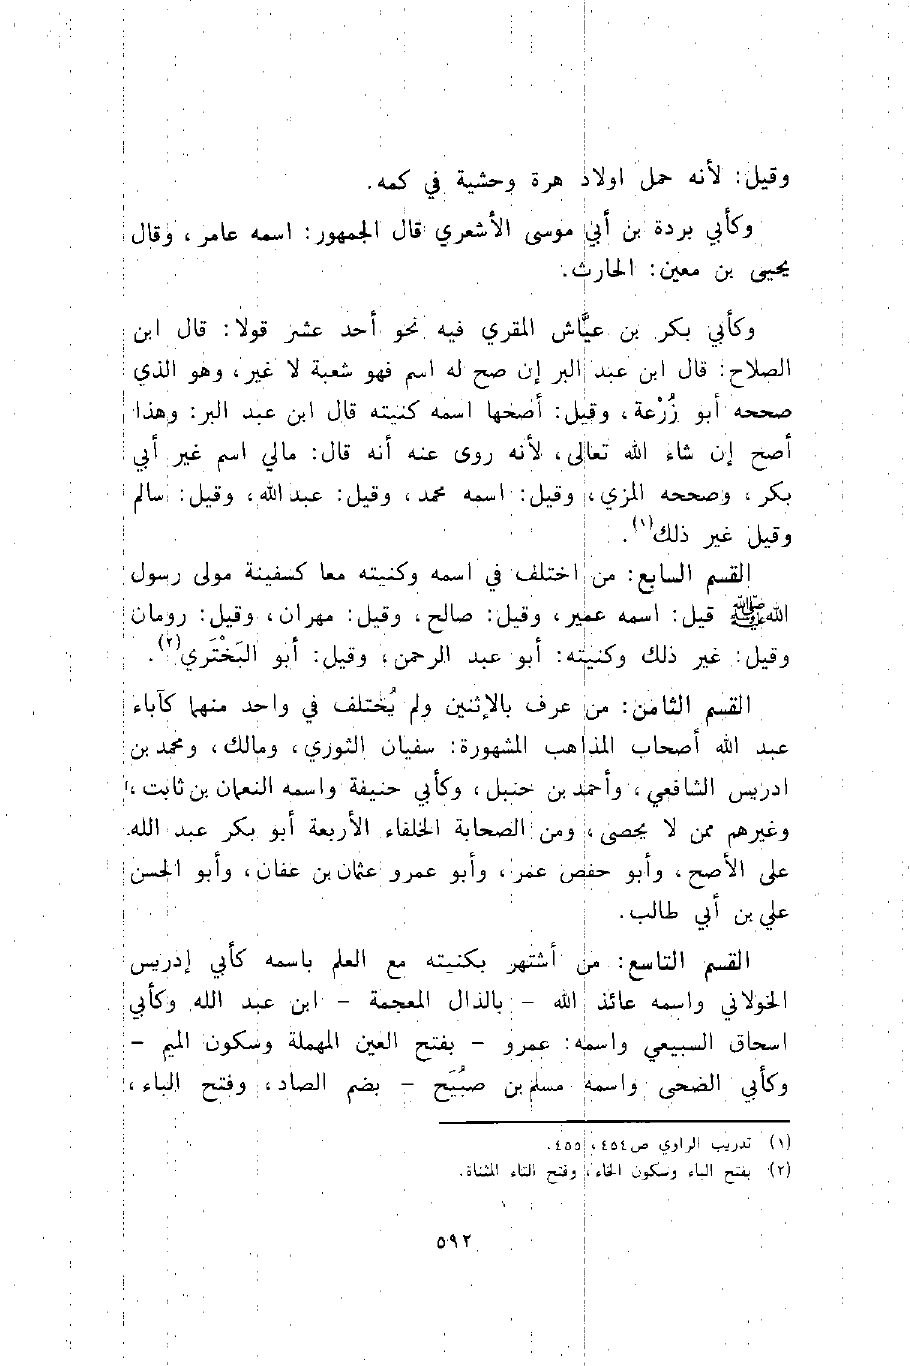 وقيل: لأنه حمل اولاد هرة وحشية في كمه.
وكأبي بردة بن أبي موسى الأشعري قال الجمهور: اسمه عامر، وقال
يحيى بن معين: الحارث.
وكأبي بكر بن عيَّاش المقري فيه نحو أحد عشر قولا: قال ابن
الصلاح: قال ابن عبد البر إن صح له اسم فهو شعبة لا غير، وهو الذي
صححه أبو زُرْعة، وقيل: أصحها اسمه كنيته قال ابن عبد البر: وهذا
أصح إن شاء الله تعالى، لأنه روى عنه أنه قال: مالي اسم غير أبي
بكر، وصححه المزي، وقيل: اسمه محمد، وقيل: عبد الله، وقيل: سالم
وقيل غير ذلك(١).
القسم السابع: من اختلف في اسمه وكنيته معا كسفينة مولى رسول
الله ﷺ قيل: اسمه عمير، وقيل: صالح، وقيل: مهران، وقيل: رومان
وقيل: غير ذلك وكنيته: أبو عبد الرحمن، وقيل: أبو البَخْتَري(٢).
القسم الثامن: من عرف بالإثنين ولم يُختلف في واحد منهما كآباء
عبد الله أصحاب المذاهب المشهورة: سفيان الثوري، ومالك، ومحمد بن
ادريس الشافعي، وأحمد بن حنبل، وكأبي حنيفة واسمه النعمان بن ثابت،
وغيرهم ممن لا يحصى، ومن الصحابة الخلفاء الأربعة أبو بكر عبد الله
على الأصح، وأبو حفص عمر، وأبو عمرو عثمان بن عفان، وأبو الحسن
علي بن أبي طالب.
القسم التاسع: من أشتهر بكنيته مع العلم باسمه كأبي إدريس
الخولاني واسمه عائذ الله - بالذال المعجمة - ابن عبد الله وكأبي
اسحاق السبيعي واسمه: عمرو - بفتح العين المهملة وسكون الميم -
وكأبي الضحى واسمه مسلم بن صُبَيَح - بضم الصاد، وفتح الباء،
(١) تدريب الراوي ص ٤٥٤، ٤٥٥.
(٢) بفتح الباء وسكون الخاء، وفتح التاء المثناة.
٥٩٢